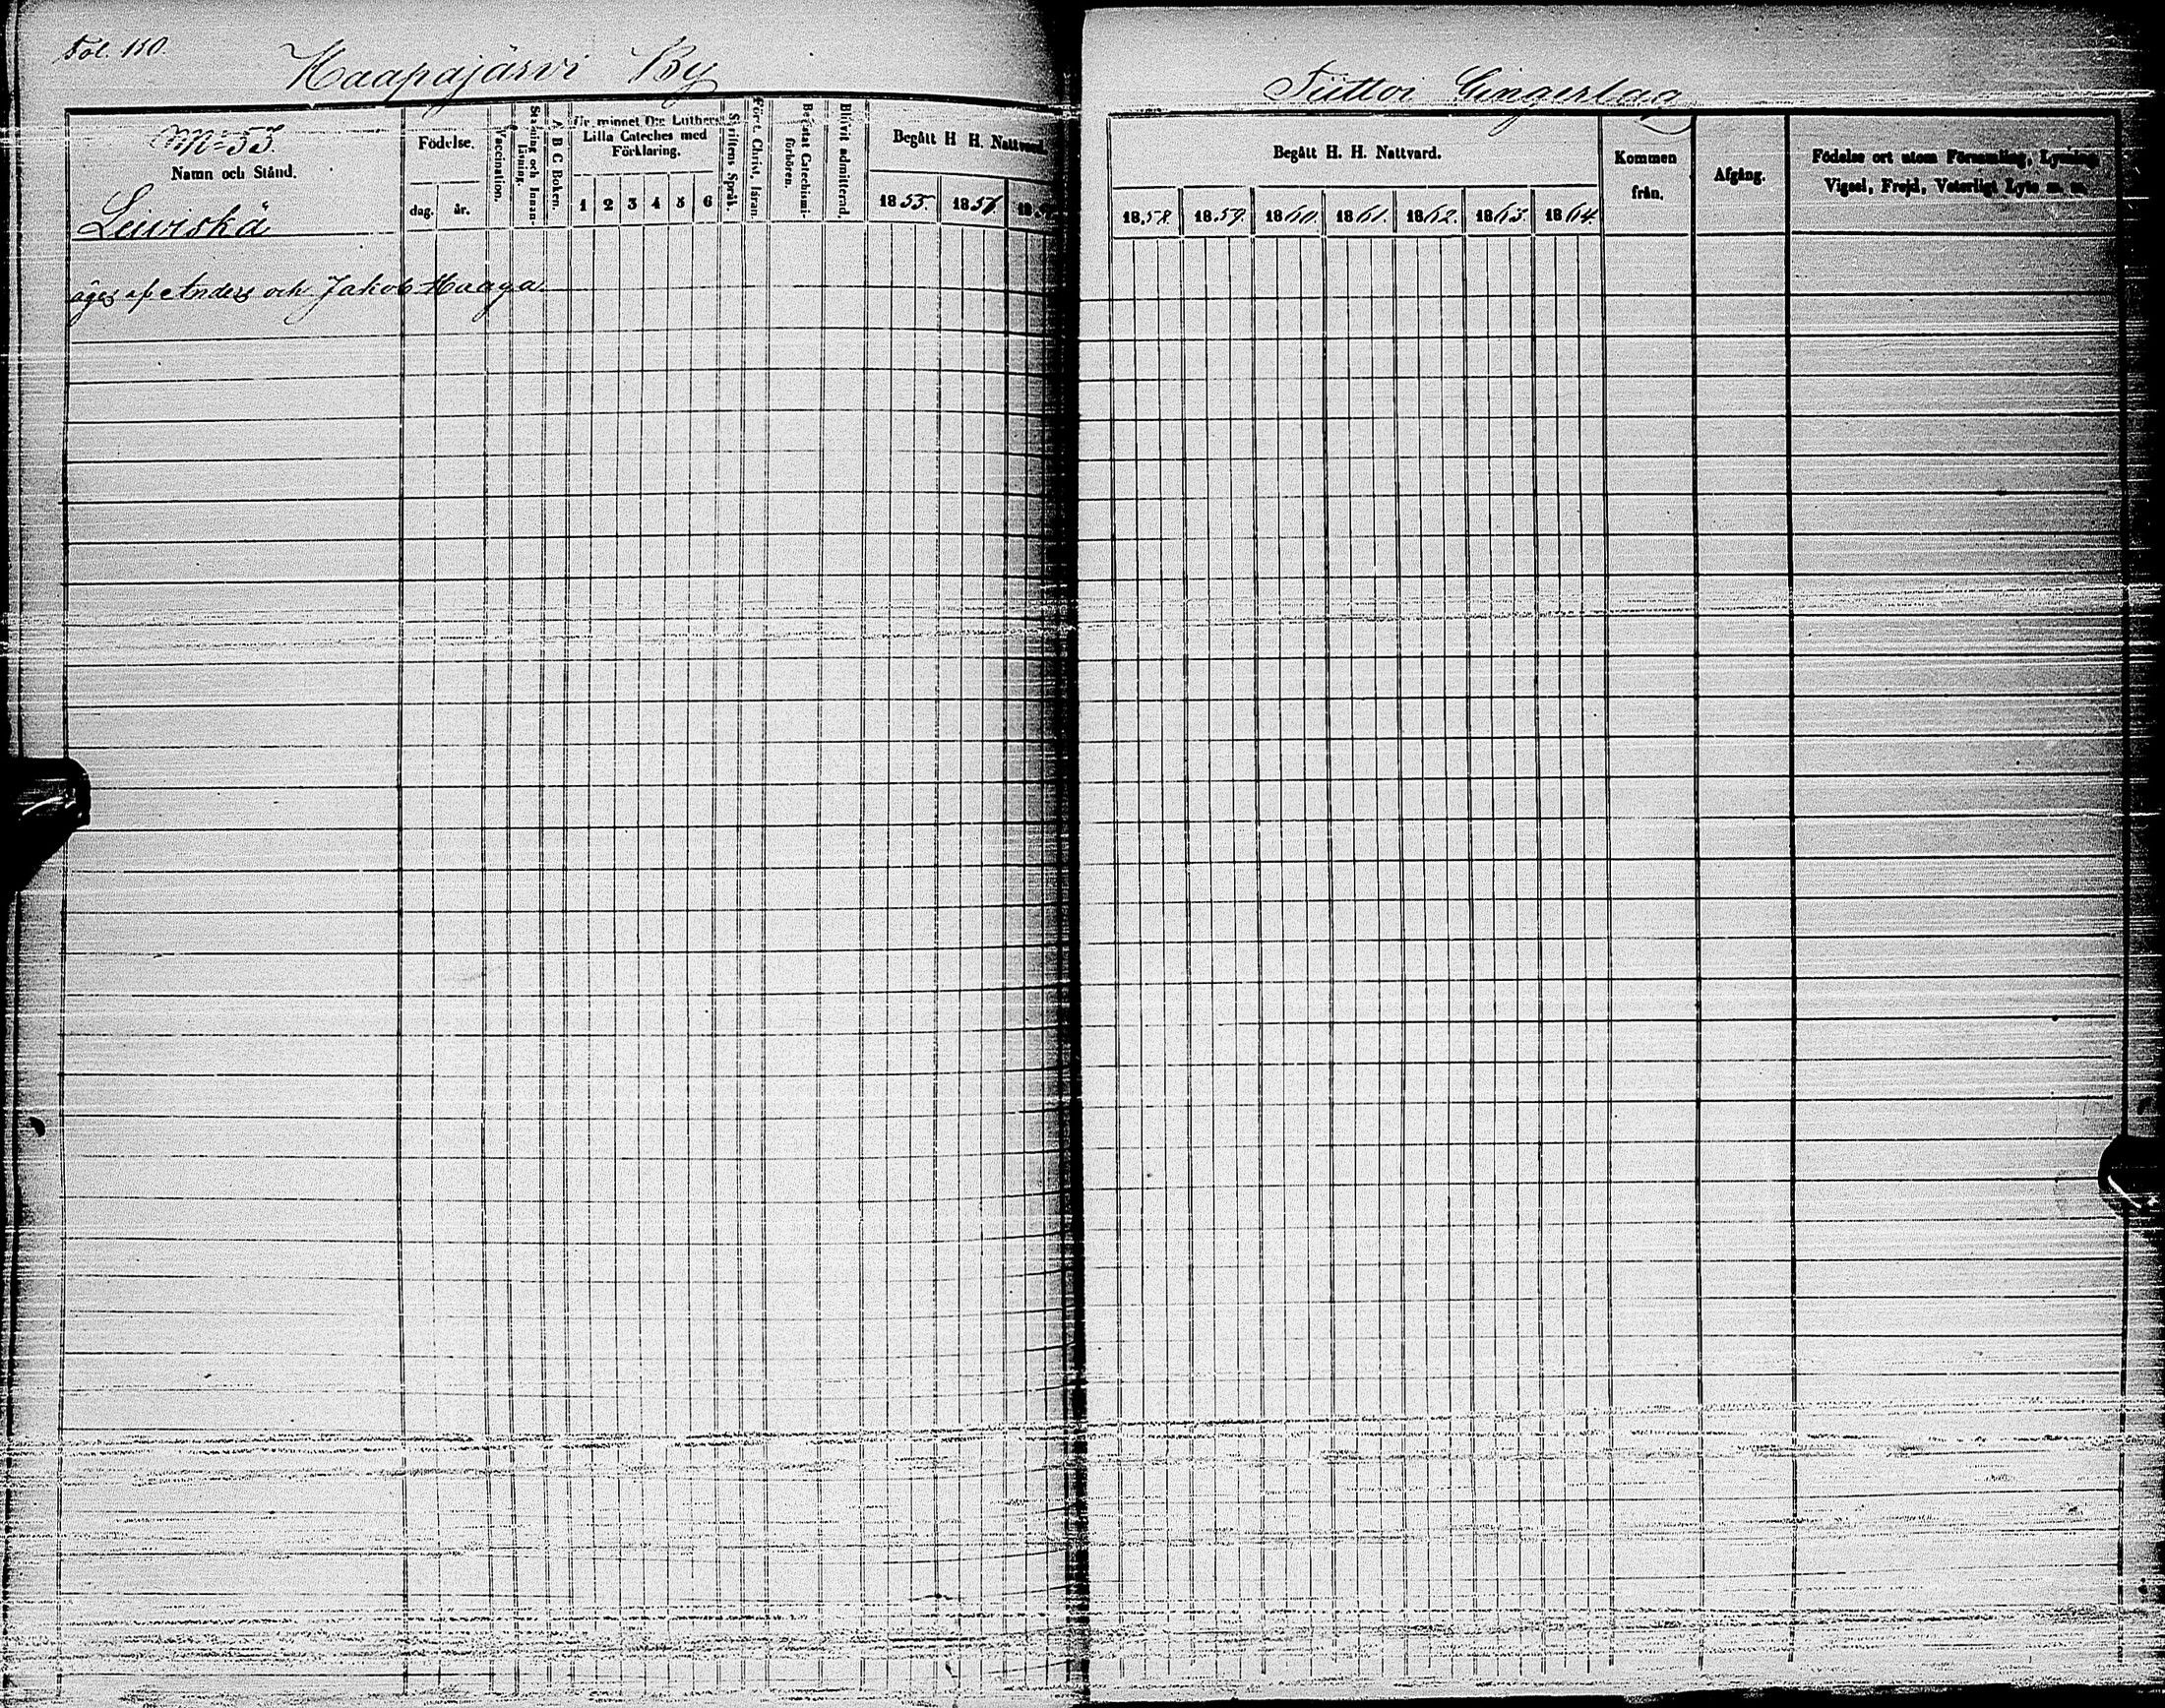 Fol. 150.
Haapajärvi By
N:o 53.
Namn och Stånd.
Leiviskä
Födelse.
dag.
år.
Vaccination.
Stafning och Innanläsning.
A B C Boken.
Ur minnet D:r Luthers Lilla Cateches med Förklaring.
1 2 3 4 5 6
Skriftens Språk.
Först. Christ. läran.
Bevistat Catechismiförhören.
Blifvit admitterad.
Begått H. H. Nattvard.
1855. 1856. 18
äges af Anders och Jakob Haaga
Tiittoi Gingerlag
Begått H. H. Nattvard.
1858. 1859. 1860. 1861. 1862. 1863. 1864.
Kommen från.
Afgång.
Födelse ort utom Församling, Lysning, Vigsel, Frejd, Veterligt Lyte m. m.